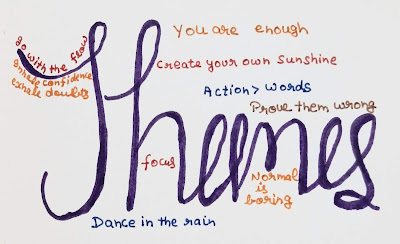 You are enough
go with the flow
Inhale confidence
exhale doubts
Create your own sunshine
Action > words
Prove them wrong
focus
Normal
is
boring
Dance in the rain